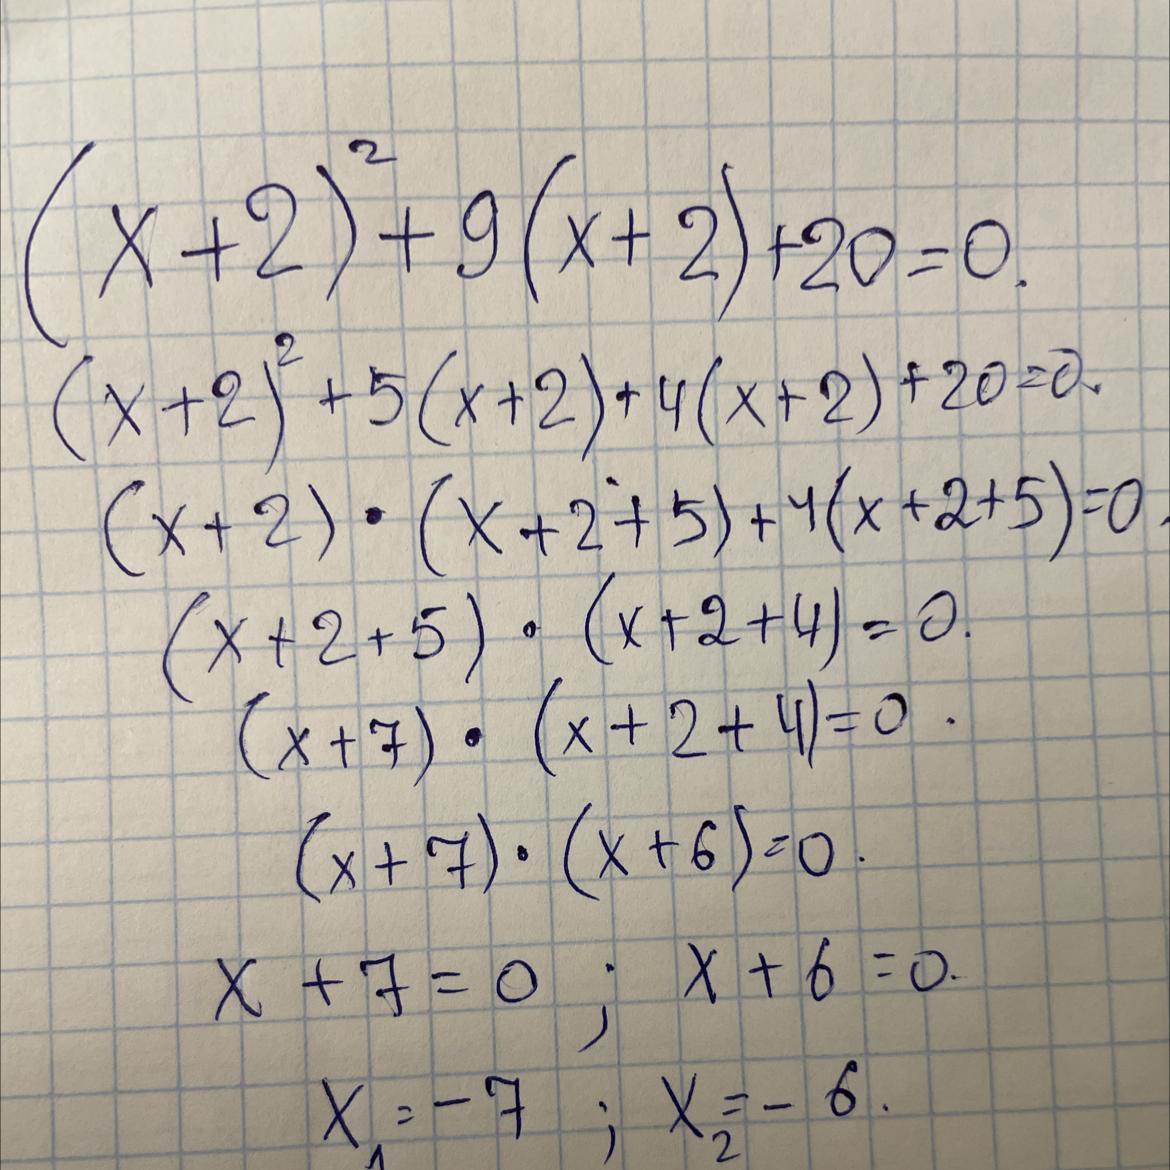 (x+2)²+9(x+2)+20=0.
(x+2)²+5(x+2)+4(x+2)+20=0.
(x+2)•(x+2+5)+4(x+2+5)=0.
(x+2+5)•(x+2+4)=0.
(x+7)•(x+2+4)=0.
(x+7)•(x+6)=0.
x+7=0; x+6=0.
x₁=-7; x₂=-6.